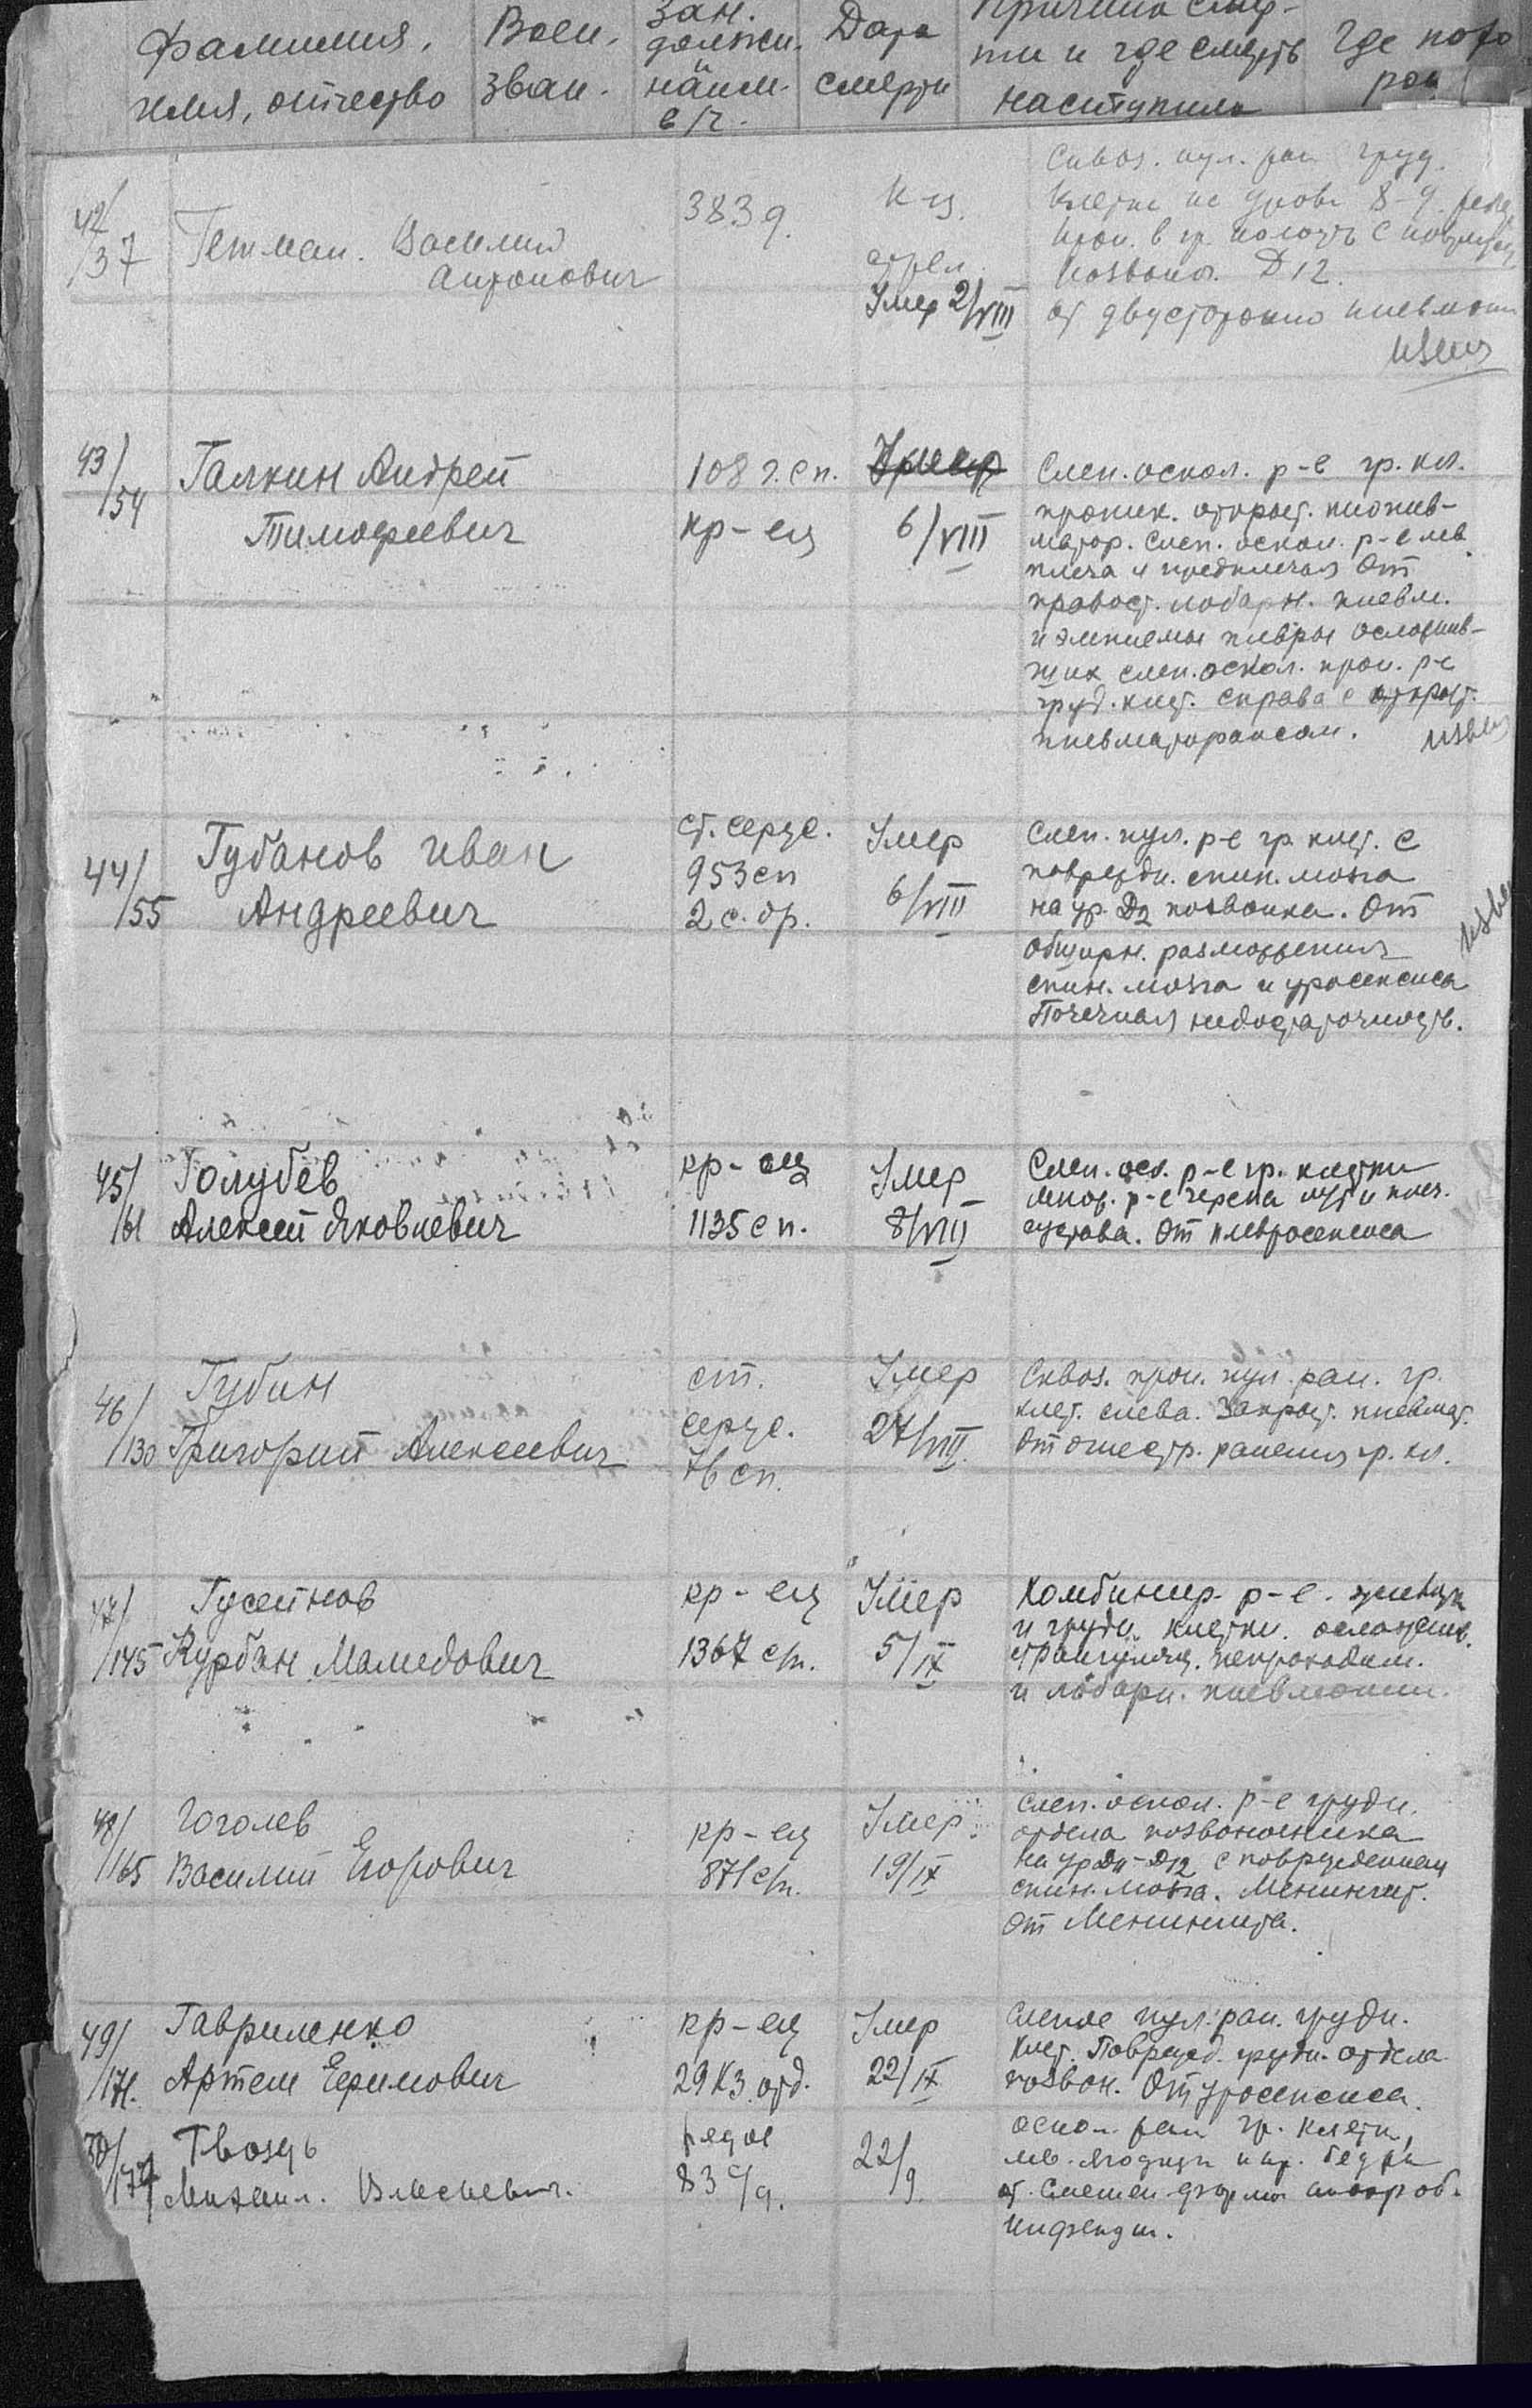 Фамилия,
имя, отчество
Воен.
зван.
Зан.
должн.
и
наим.
в/ч.
Дата
смерти
Причина смер-
ти и где смерть
наступила
Где похо
рон
42/37
Гетман. Василий
Антонович
383 д.
К-ц.
Умер 2/VIII
Сквоз. пул. ран груд.
клетки на уровн 8-9
прон. в гр. полость с
позвонк. D12.
от двусторонно пневмони
извещ
43/54
Галкин Андрей
Тимофеевич
108 г.сп.
кр-ец
Умер
6/VIII
Слеп. оскол. р-е гр. кл.
проник. открыт. пионев-
матор. Слеп. оскол. р-е лев.
плеча и предплечья От
правост. лобарн. пневм.
и эмпиемы плевры осложнив-
ших слеп. оскол. прон. р-е
груд. клет. справа с открыт.
пневматораксом.
извещ
44/55
Губанов Иван
Андреевич
ст. серж.
953 сп
2 с. др.
Умер
6/VIII
Слеп. пул. р-е гр. клет. с
поврежди. спин. мозга
на ур. D2 позвонка. От
обширн. размозжения
спин. мозга и уросепсиса
Почечная недостаточность.
45/61
Голубев
Алексей Яковлевич
кр-ец
1135 сп.
Умер
8/VIII
Слеп. оск. р-е гр. клетки
множ. р-е черепа и плеч.
сустава. От плевросепсиса
46/130
Губин
Григорий Алексеевич
ст.
серж.
76 сп.
Умер
27/VIII.
Сквоз. прон. пул. ран. гр.
клет. слева. Закрыт. пневмат.
От огнестр. ранения гр. кл.
47/145
Гусейнов
Курбан Мамедович
кр-ец
1367 с/п.
Умер
5/IX
Комбинир. р-е. живота
и грудн. клетки. осложнив.
странгуляц. непроходим.
и лобарн. пневмонии.
48/165
Гоголев
Василий Егорович
кр-ец
871 с/п.
Умер.
19/IX
Слеп. оскол. р-е грудн.
отдела позвоночника
на ур D11-D12 с повреждением
спин. мозга. Менингит.
От Менингита.
49/171.
Гавриленко
Артем Ефимович
кр-ец
29 КЗ. отд.
Умер
22/IX
Слепое пул. ран. грудн.
клет. Поврежд. грудн. отдела
позвон. От уросепсиса.
50/177
Гвоздь
Михаил.
рядов
83 с/д.
22/9.
Оскол. ран гр. клетки,
лев. ягодицы и пр. бедра
от. Смешен. формы анаэроб.
инфекции.